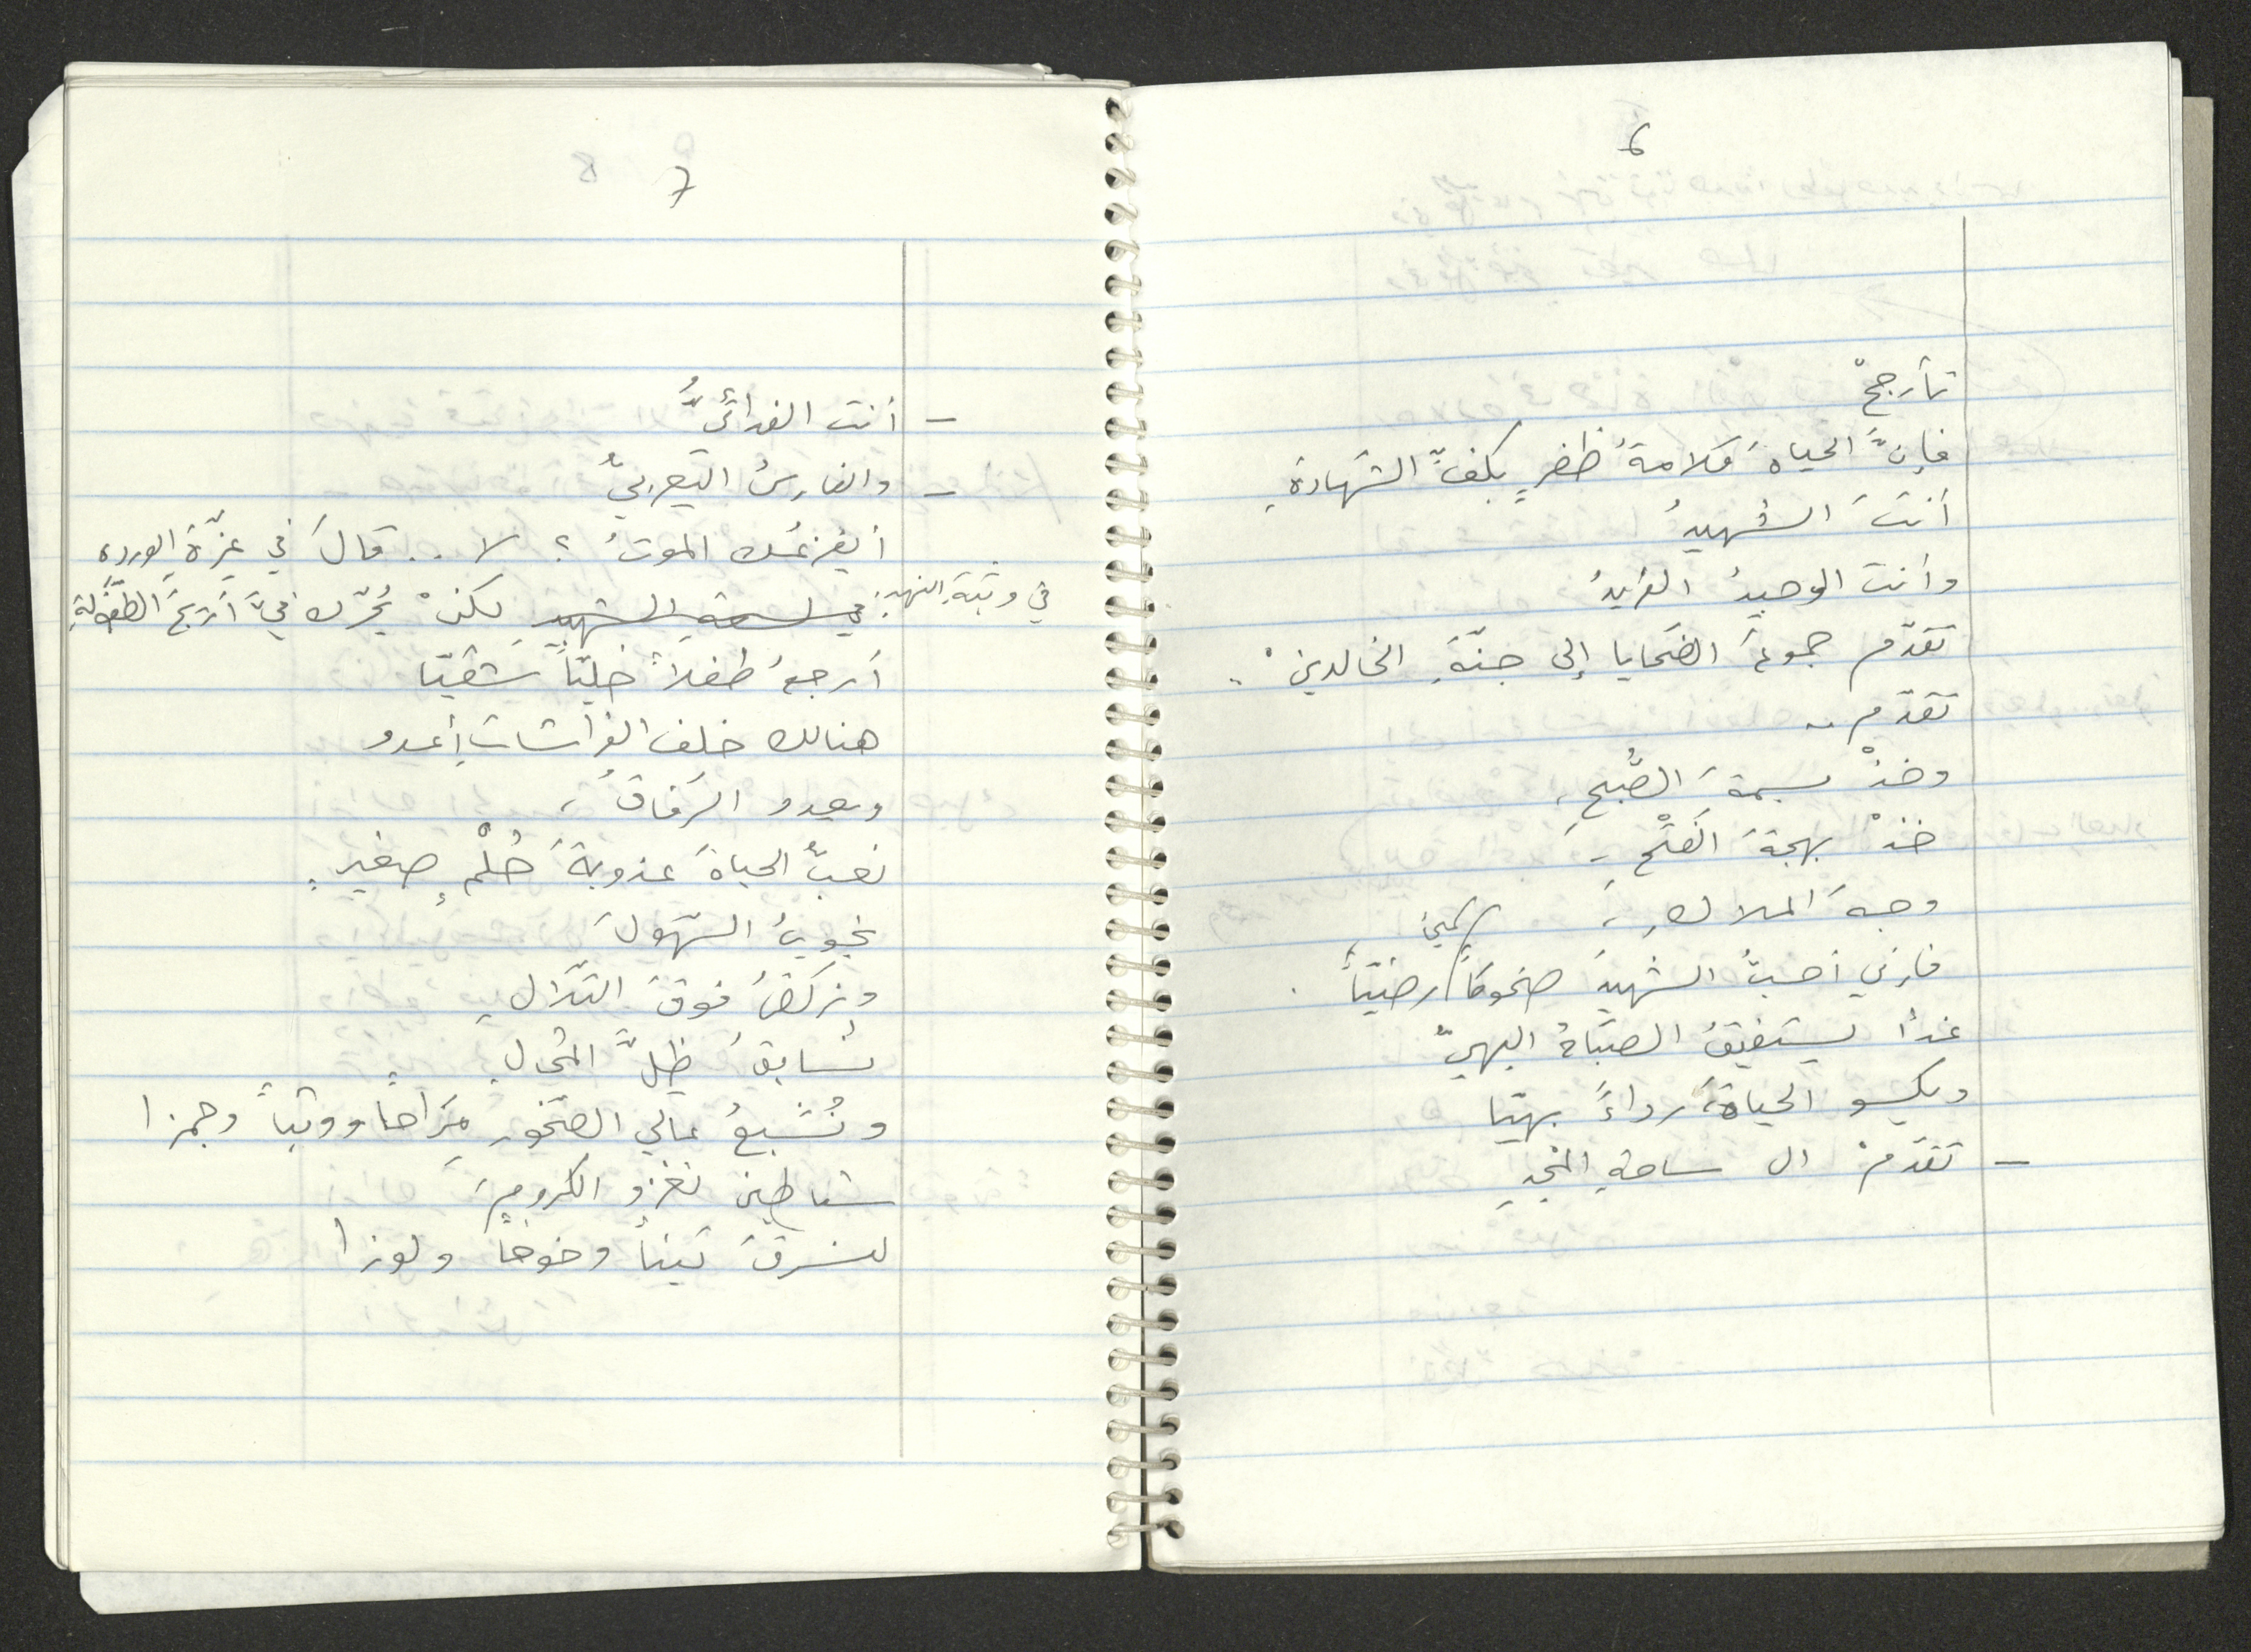 6
تأرجحْ
فإنَّ الحياةَ قلامةُ ظفرٍ بكفِّ الشهادةِ
أنتَ الشهيدُ
وأنت الوحيدُ الفريدُ
تقدّم جموعَ الضحايا إلى جنّةِ الخالدينْ .
تقدّم ..
وخذْ بسمةَ الصُّبحِ ،
خذْ بهجةَ الفَتْحِ ،
وجهَ الملاكِ ،
لكي
فإني أحبُّ الشهيدَ ضحوكاً رضيّاً .
غداً يستفيقُ الصباحُ البهيّ
ويكسو الحياةَ رداءً بهيّا
– تقدّمْ الى ساحةِ المجدِ
7
– أنت الفدائيُّ
– والفارسُ اليعربيّ
أيفزعُك الموتُ ؟ لا .. قالَ في عزّةِ الورد ،
في وثبةِ النهدِ : في بسمةِ الشهيدِ لكنْ يُحرّك فيَّ أريجَ الطفولةِ
أرجعُ طفلاً خليّاً شقيّا
هنالك خلف الفراشاتِ أعدو
ويعدو الرفاقُ ،
نعبُّ الحياةَ عذوبةَ حُلْمٍ صغيرٍ
نجوبُ السّهولَ
ونركضُ فوقَ التّلالِ
نسابقُ ظلَّ المُحالِ
ونُشبعُ عالي الصّخورِ مِزاحاً ووثباً وجمزا
شياطين نغزو الكرومَ ،
لنسرقَ تيناً وخوخاً ولوزا